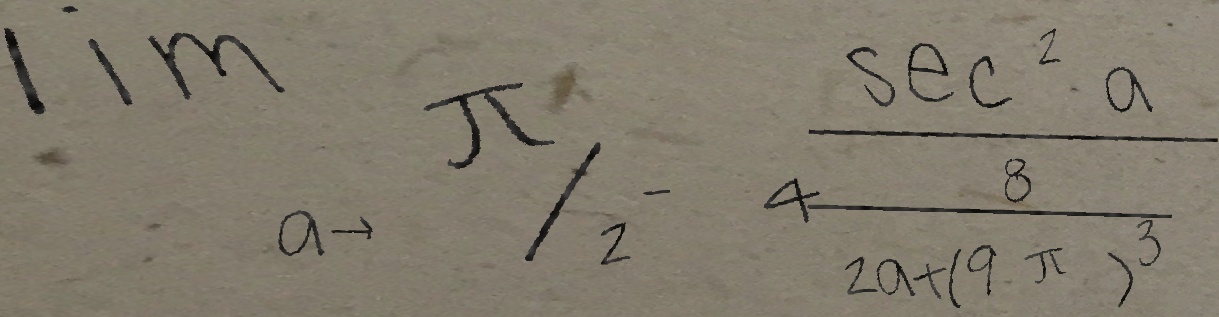 lim a→ π/2⁻ 4 sec² a / 8 / 2a+(9 π )³